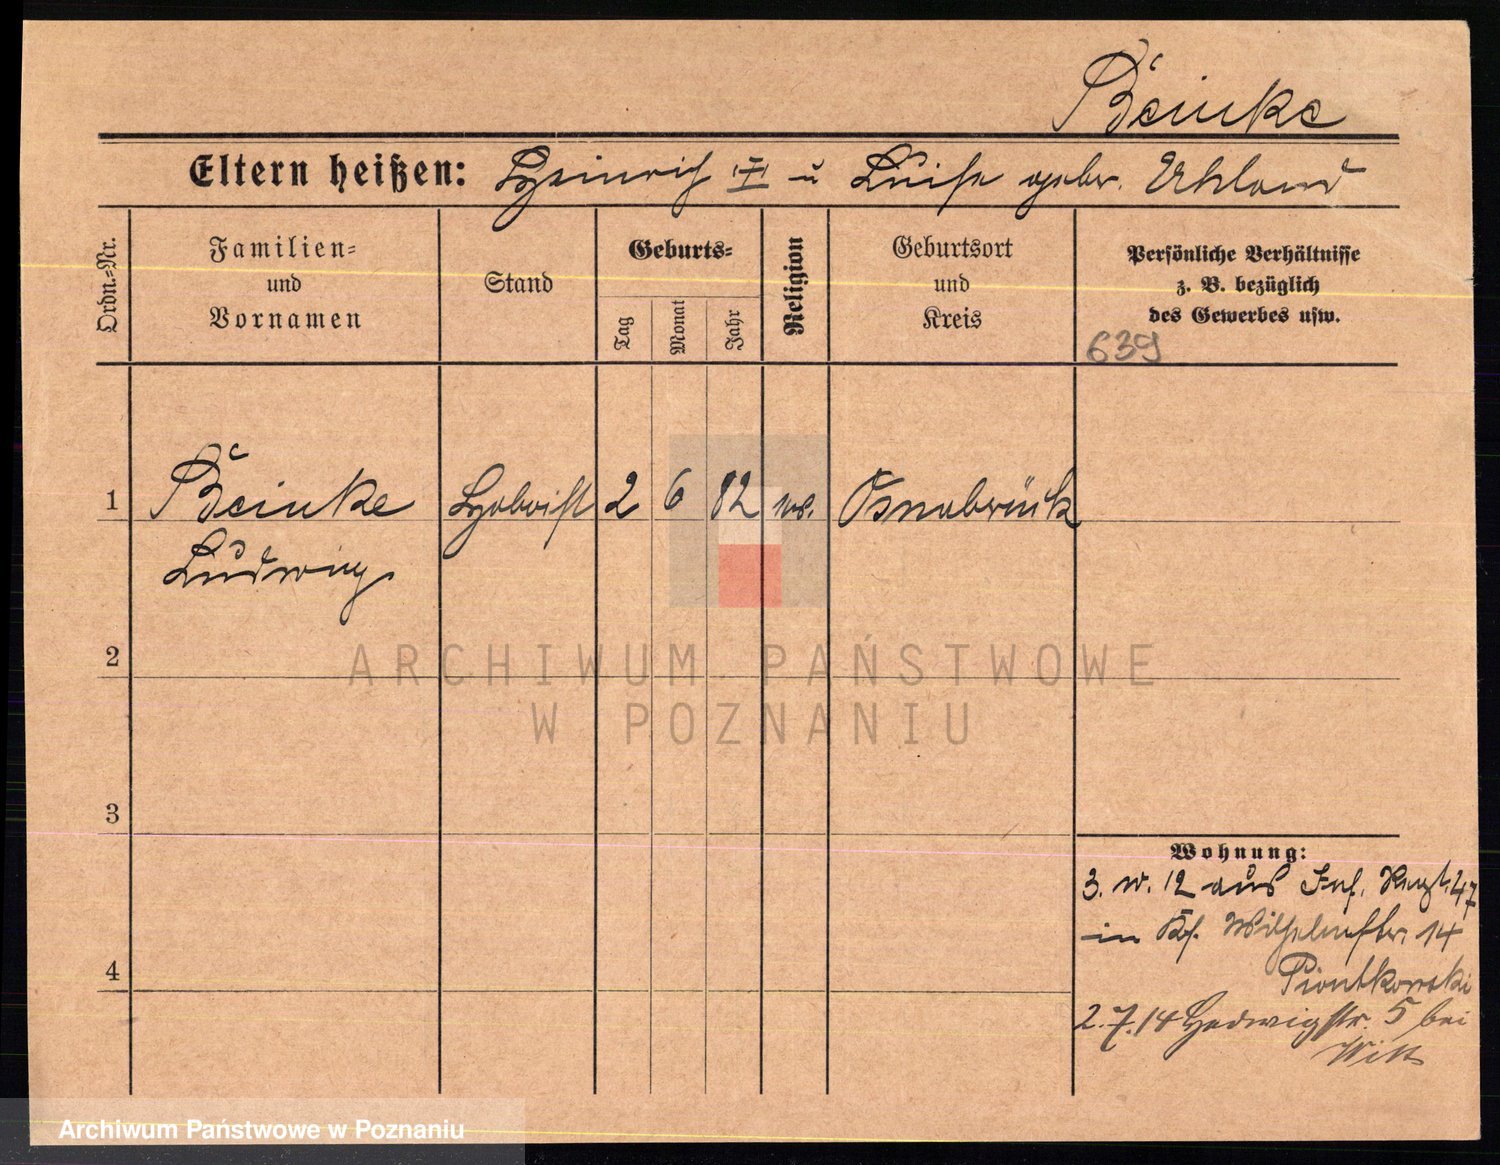 Beinke
Eltern heißen: Heinrich I u Luise gebr. Uhland
Ordn.-Nr.
Familien-
und
Vornamen
Stand
Geburts-
Tag
Monat
Jahr
Religion
Geburtsort
und
Kreis
Persönliche Verhältnisse
z. B. bezüglich
des Gewerbes usw.
639
1
Beinke
Hoboist
2
6
82
Osnabrück
Ludwig
2
3
4
ARCHIWUM PAŃSTWOWE
W POZNANIU
Wohnung:
3. 12 aus Inf. Regt. 47
in Wilhelmstr. 14
Piontkowski
2.7.14 Hedwigstr. 5 bei
Witt
Archiwum Państwowe w Poznaniu